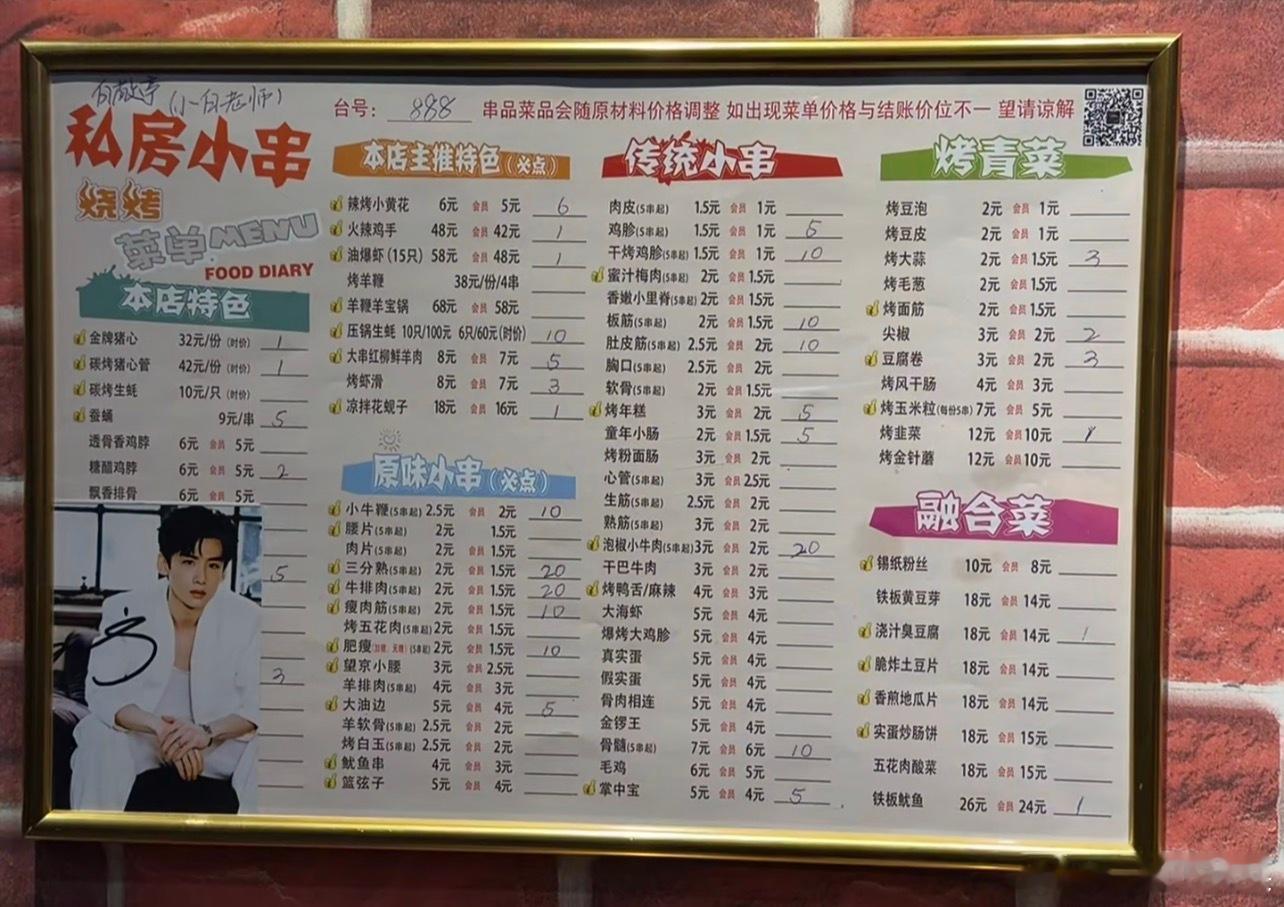 (小白老师)
私房小串
烧烤
菜单MENU
FOOD DIARY
台号: 888
串品菜品会随原材料价格调整 如出现菜单价格与结账价位不一 望请谅解
本店特色
金牌猪心 32元/份(时价) 1
碳烤猪心管 42元/份(时价) 1
碳烤生蚝 10元/只(时价)
蚕蛹 9元/串 5
透骨香鸡脖 6元 会员 5元
糖醋鸡脖 6元 会员 5元 2
飘香排骨 6元 会员 5元
5
3
本店主推特色(必点)
辣烤小黄花 6元 会员 5元 6
火辣鸡手 48元 会员 42元 1
油爆虾(15只) 58元 会员 48元 1
烤羊鞭 38元/份/4串
羊鞭羊宝锅 68元 会员 58元
压锅生蚝 10只/100元 6只/60元(时价) 10
大串红柳鲜羊肉 8元 会员 7元 5
烤虾滑 8元 会员 7元 3
凉拌花蚬子 18元 会员 16元 1
原味小串(必点)
小牛鞭(5串起) 2.5元 会员 2元 10
腰片(5串起) 2元 1.5元
肉片(5串起) 2元 会员 1.5元
三分熟(5串起) 2元 会员 1.5元 20
牛排肉(5串起) 2元 会员 1.5元 20
瘦肉筋(5串起) 2元 会员 1.5元 10
烤五花肉(5串起) 2元 会员 1.5元
肥瘦 (5串起) 2元 会员 1.5元 10
望京小腰 3元 会员 2.5元
羊排肉(5串起) 4元 会员 3元
大油边 5元 会员 4元 5
羊软骨(5串起) 2.5元 会员 2元
烤白玉(5串起) 2.5元 会员 2元
鱿鱼串 4元 会员 3元
篮弦子 5元 会员 4元
传统小串
肉皮(5串起) 1.5元 会员 1元
鸡胗(5串起) 1.5元 会员 1元 5
干烤鸡胗(5串起) 1.5元 会员 1元 10
蜜汁梅肉(5串起) 2元 会员 1.5元
香嫩小里脊(5串起) 2元 会员 1.5元
板筋(5串起) 2元 会员 1.5元 10
肚皮筋(5串起) 2.5元 会员 2元 10
胸口(5串起) 2.5元 会员 2元
软骨(5串起) 2元 会员 1.5元
烤年糕 3元 会员 2元 5
童年小肠 2元 会员 1.5元 5
烤粉面肠 3元 会员 2元
心管(5串起) 3元 会员 2.5元
生筋(5串起) 2.5元 会员 2元
熟筋(5串起) 3元 会员 2元
泡椒小牛肉(5串起) 3元 会员 2元 20
干巴牛肉 3元 会员 2元
烤鸭舌/麻辣 4元 会员 3元
大海虾 5元 会员 4元
爆烤大鸡胗 5元 会员 4元
真实蛋 5元 会员 4元
假实蛋 5元 会员 4元
骨肉相连 5元 会员 4元
金锣王 5元 会员 4元
骨髓(5串起) 7元 会员 6元 10
毛鸡 6元 会员 5元
掌中宝 5元 会员 4元 5
烤青菜
烤豆泡 2元 会员 1元
烤豆皮 2元 会员 1元
烤大蒜 2元 会员 1.5元 3
烤毛葱 2元 会员 1.5元
烤面筋 2元 会员 1.5元
尖椒 3元 会员 2元 2
豆腐卷 3元 会员 2元 3
烤风干肠 4元 会员 3元
烤玉米粒(每份5串) 7元 会员 5元
烤韭菜 12元 会员 10元 1
烤金针蘑 12元 会员 10元
融合菜
锡纸粉丝 10元 会员 8元
铁板黄豆芽 18元 会员 14元
浇汁臭豆腐 18元 会员 14元 1
脆炸土豆片 18元 会员 14元
香煎地瓜片 18元 会员 14元
实蛋炒肠饼 18元 会员 15元
五花肉酸菜 18元 会员 15元
铁板鱿鱼 26元 会员 24元 1